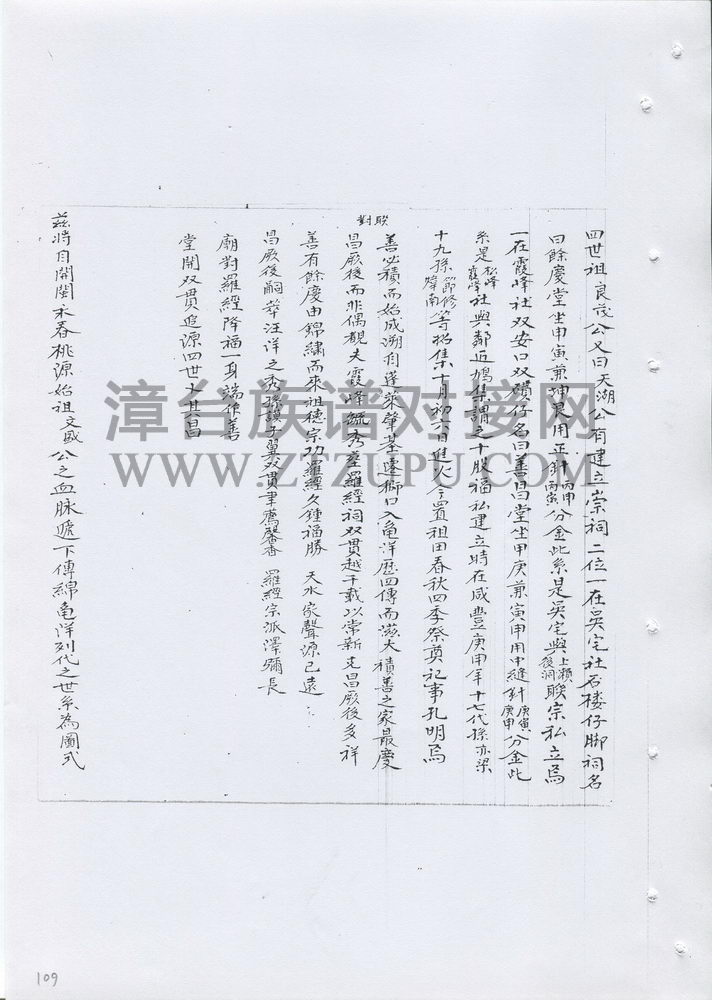 四世祖良茂公又曰天湖公有建立崇祠二位一在吳宅社石楼仔脚祠名
曰餘慶堂坐申寅兼坤艮用正針丙申丙寅分金此系是吳宅與上瀨後洞联宗私立焉
一在霞峰社双安口双碽仔名曰善昌堂坐甲庚兼寅申用中縫針庚寅庚申分金此
系是松峰霞峰社與鄰近鳩集謂之十股福私建立時在咸豐庚申年十七代孫亦梁
十九孫節修煒南等招集十月初六日進火今置祖田春秋四季祭奠記事孔明焉
联對
善必積而始成溯自蓬萊肇基蓬獅口入龜洋歷四傳而滋大積善之家最慶
昌厥後而非偶觀夫霞峰毓秀産羅經祠双貫越千載以常新克昌厥後多祥
善有餘慶由錦繡而來祖德宗功羅經久鍾福勝 天水家聲源已遠
昌厥後嗣莘汪洋之秀孫謨子翼双貫聿薦馨香 羅經宗派澤彌長
廟對羅經降福一身端作善
堂開双貫追源四世卜其昌
茲將自開閩永春桃源始祖文盛公之血脉遞下傳綿龜洋列代之世系為圖式
漳台族谱对接网
WWW.ZTZUPU.COM
109